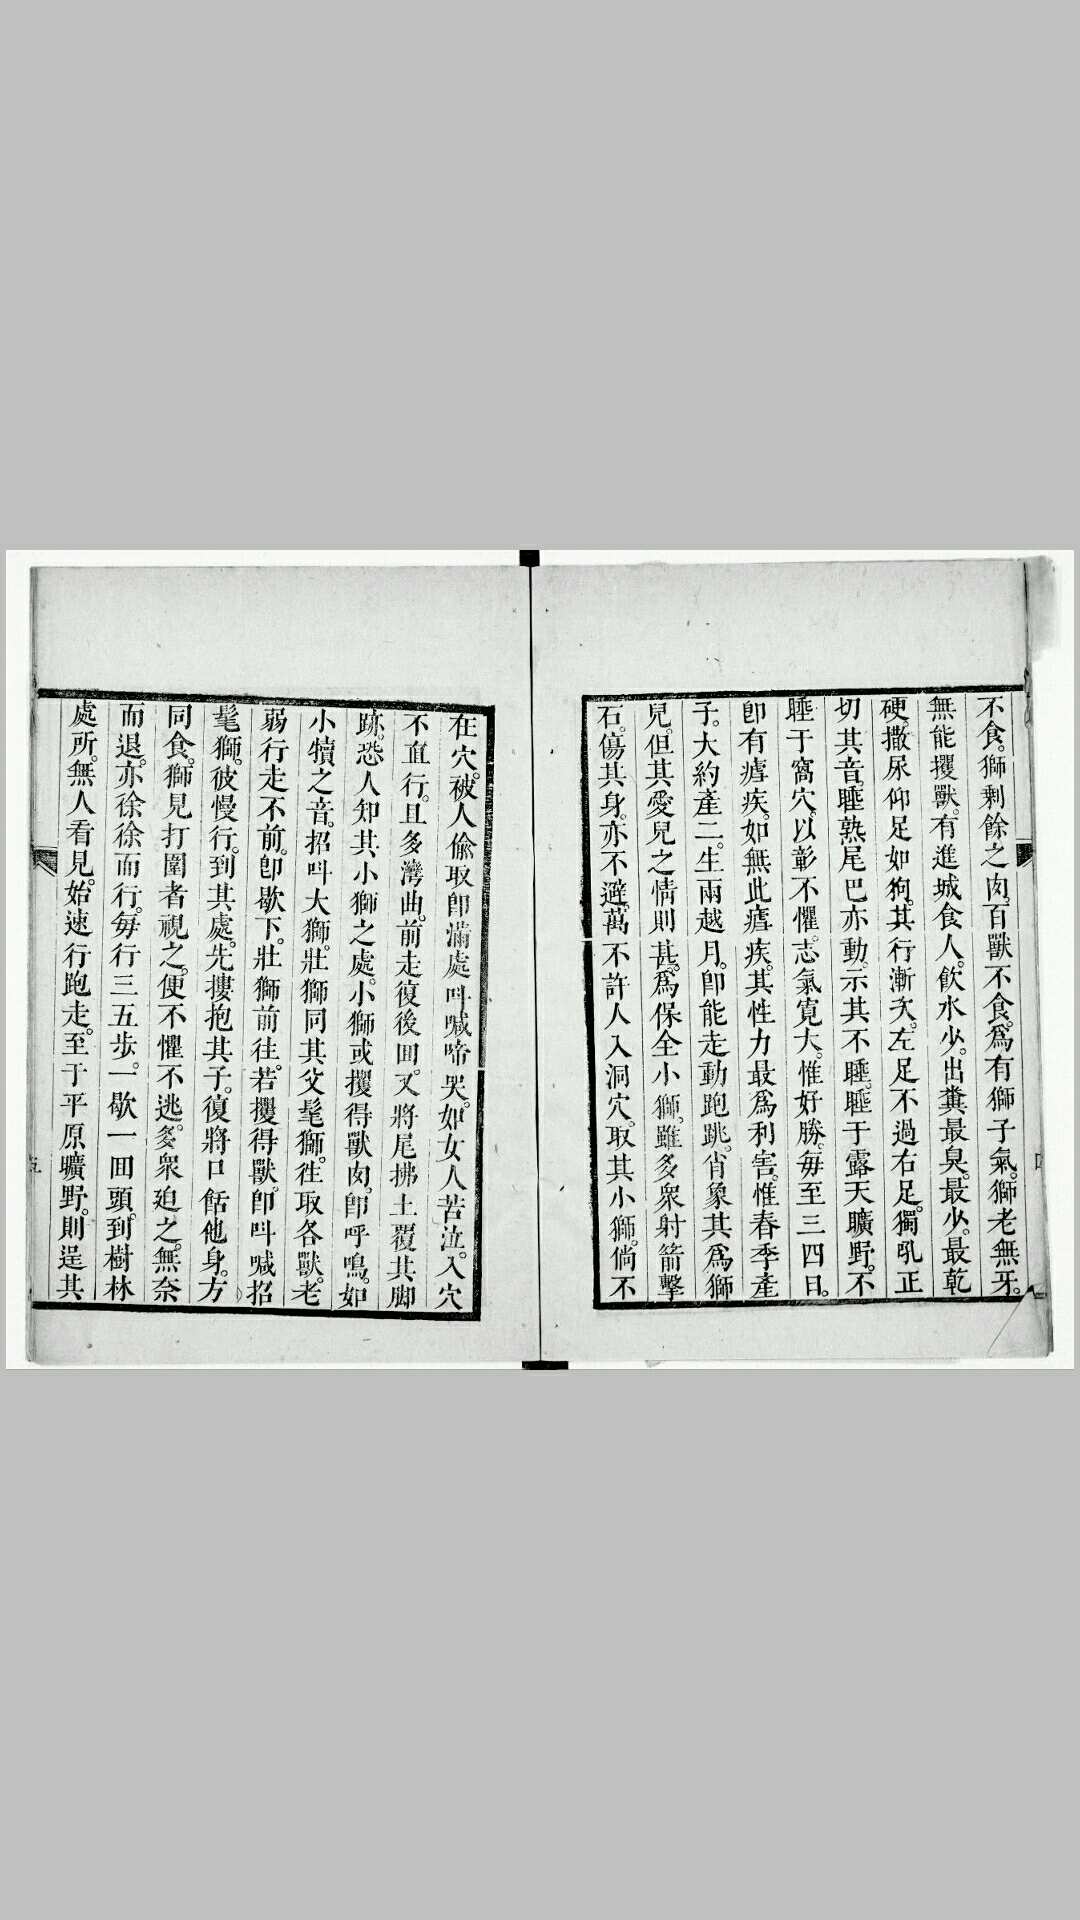 不食。獅剩餘之肉。百獸不食。爲有獅子氣。獅老無牙。
無能攫獸。有進城食人。飮水少。出糞最臭。最少。最乾
硬。撒尿仰足如狗。其行漸次。左足不過右足。獨吼正
切其音。睡熟尾巴亦動。示其不睡。睡于露天曠野。不
睡于窩穴。以彰不懼。志氣寬大。惟好勝。每至三四日。
卽有瘧疾。如無此瘧疾。其性力最爲利害。惟春季產
子。大約產二。生兩越月。卽能走動跑跳。肖象其爲獅
兒。但其愛兒之情則甚。爲保全小獅。雖多衆射箭擊
石。傷其身。亦不避。萬不許人入洞穴。取其小獅。倘不
在穴。被人偸取。卽滿處呌喊啼哭。如女人苦泣。入穴
不直行。且多灣曲。前走復後囬。又將尾拂土覆其脚
跡。恐人知其小獅之處。小獅或攫得獸肉。卽呼鳴。如
小犢之音。招呌大獅。壯獅同其父髦獅。往取各獸。老
弱行走不前。卽歇下。壯獅前往。若攫得獸。卽呌喊招
髦獅。彼慢行。到其處。先摟抱其子。復將口餂他身。方
同食。獅見打圍者視之。便不懼不逃。多衆迫之。無奈
而退。亦徐徐而行。每行三五步。一歇一囬頭。到樹林
處所。無人看見。始速行跑走。至于平原曠野。則逞其